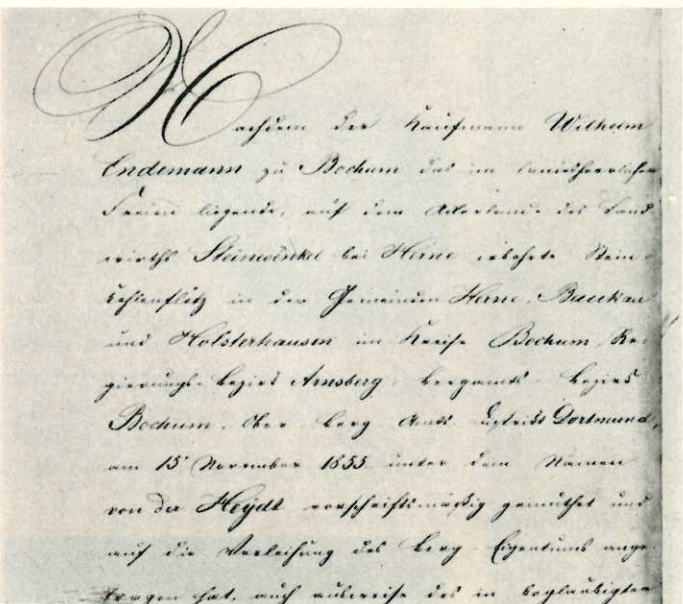 Nachdem der Kaufmann Wilhelm
Endemann zu Bochum das im landesherrlichen
Freien liegende, auf dem Ackerlande des Land
wirths Steinwinkel bei Herne erbohrte Stein-
kohlenflötz in den Gemeinden Herne, Baukau
und Holsterhausen im Kreise Bochum, Re-
gierungs-Bezirk Arnsberg, Bergamts-Bezirk
Bochum, Ober Berg Amts Distrikt Dortmund,
am 15' November 1855 unter dem Namen
von der Heydt vorschriftsmäßig gemuthet und
auf die Verleihung des Berg-Eigentums ange-
tragen hat, auch ausweise des in beglaubigter